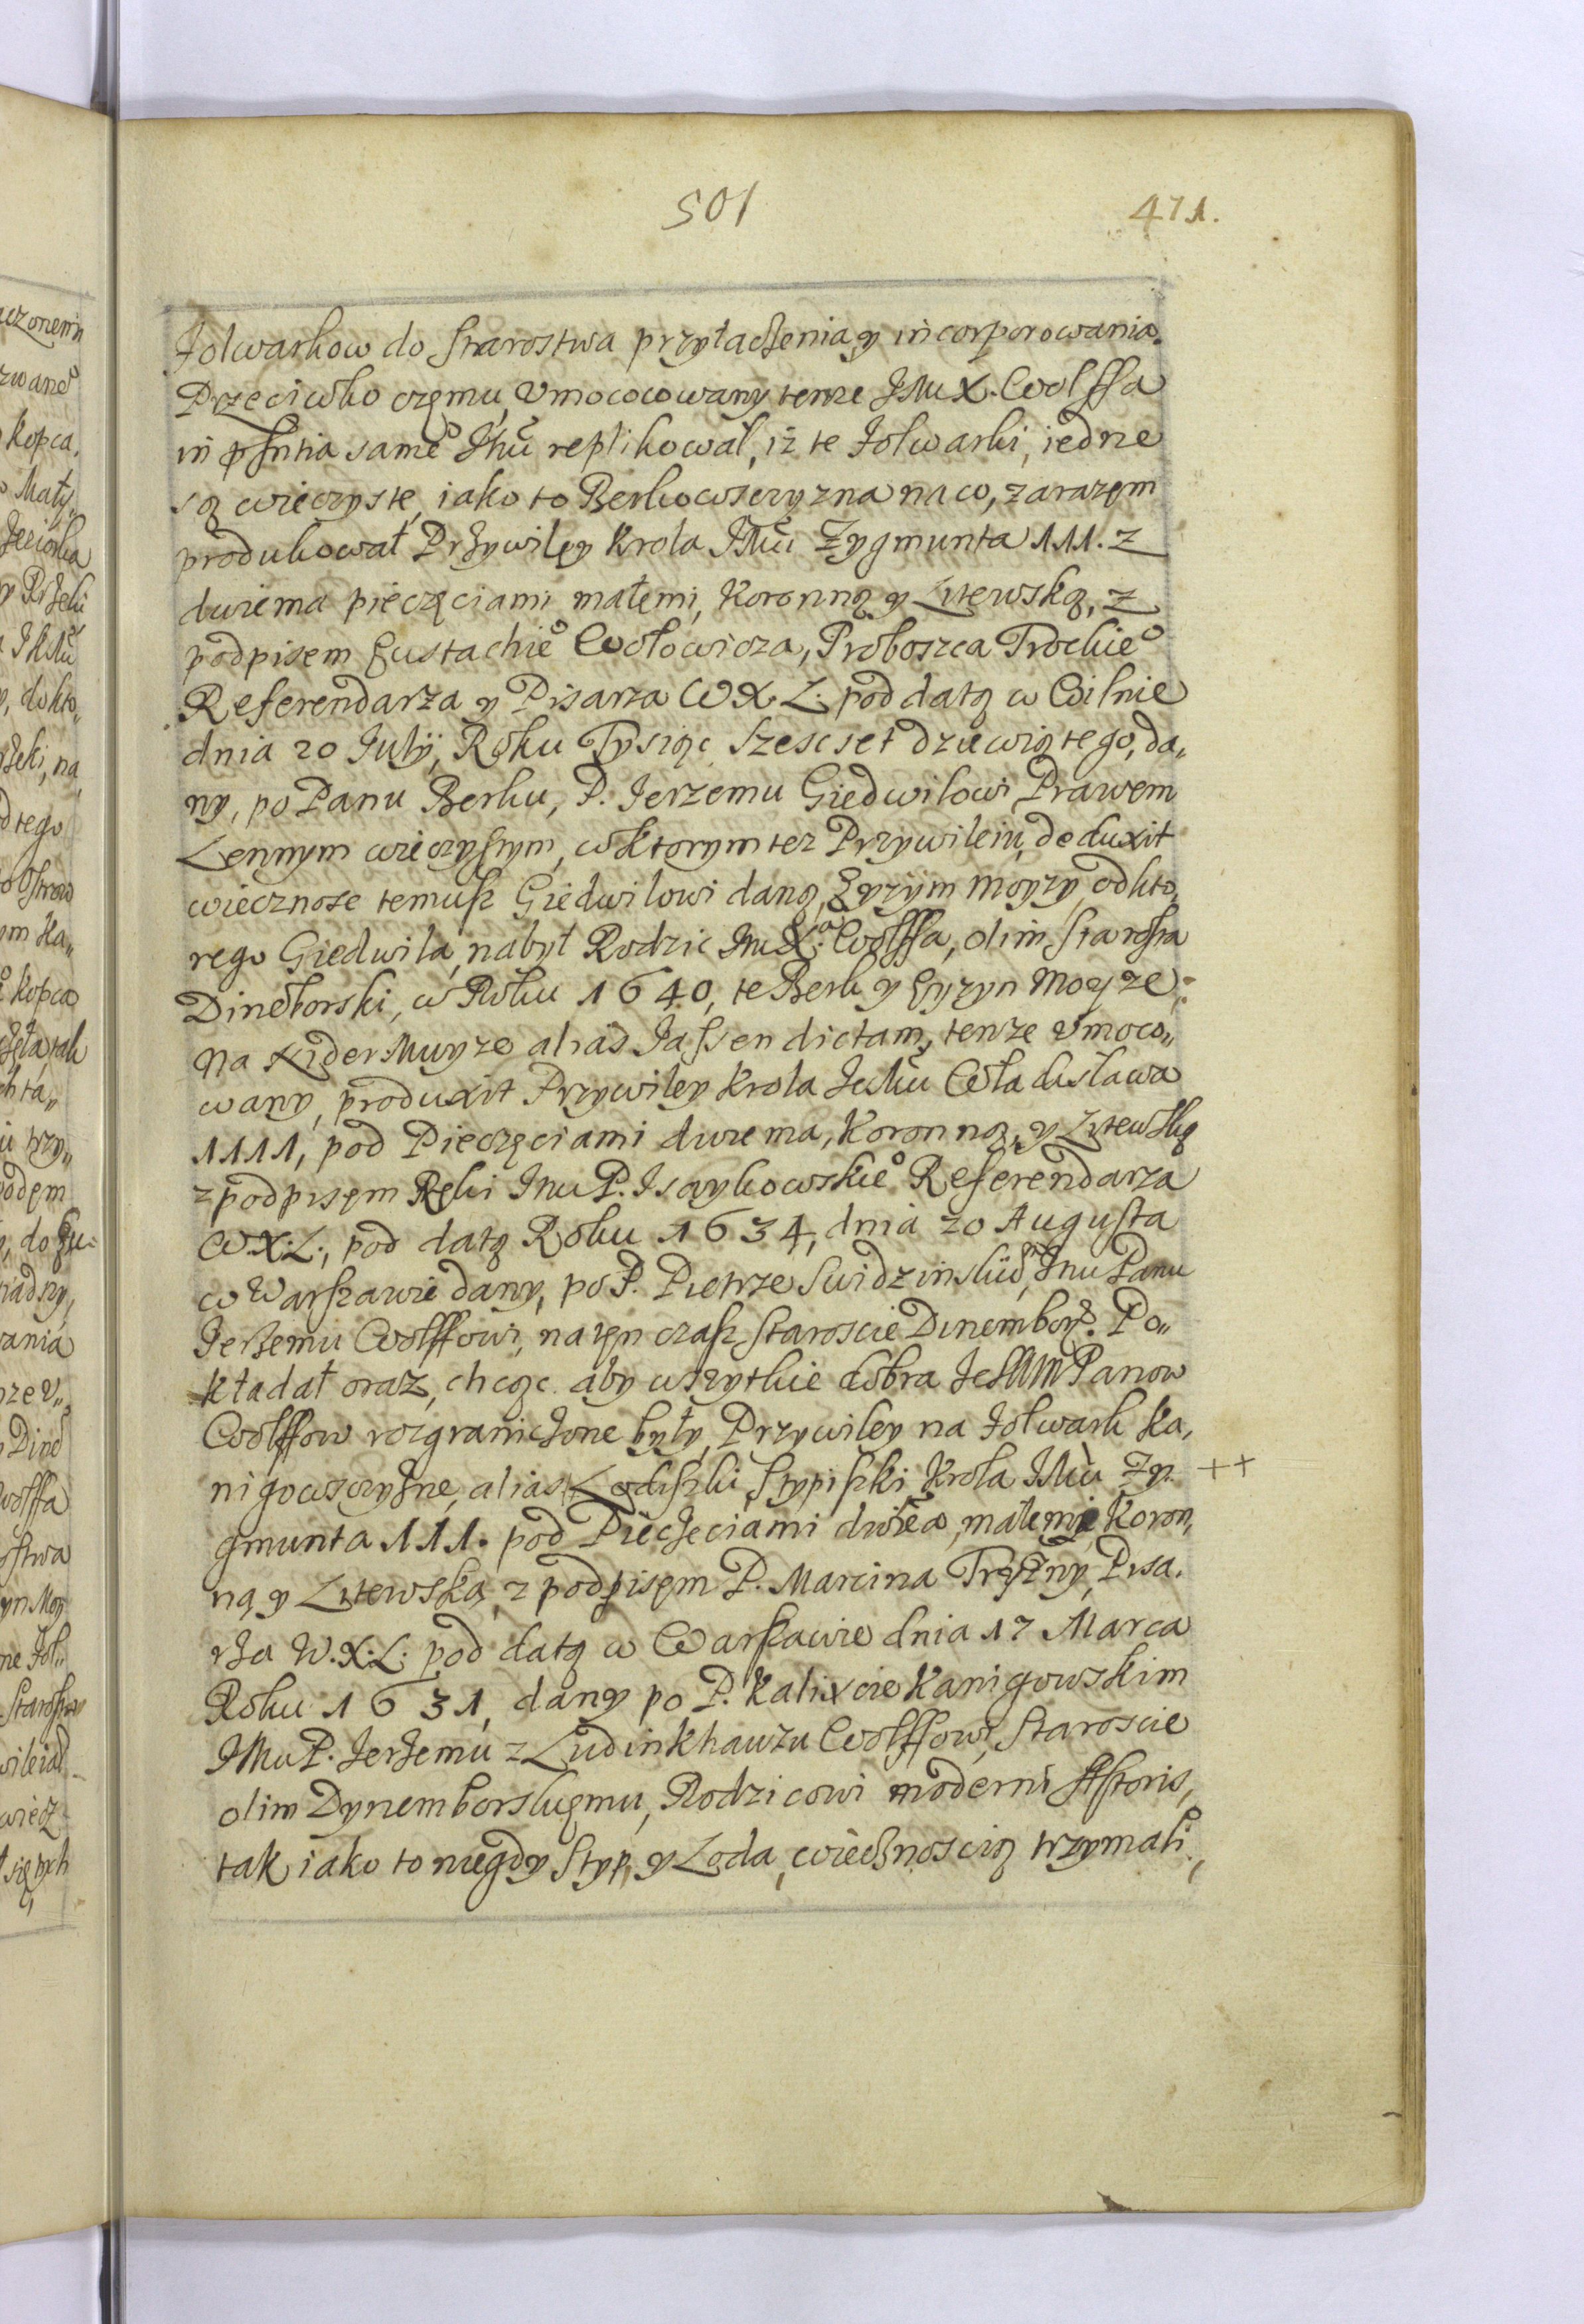 501
471.
Folwarkow do Starostwa przyłaczenia y incorporowania.
Przeciwko częmu, Vmococowany tenze JMu X. Wolffa
in pſntia sameo Jhu replikował, iż te Folwarki, iedne
są wieczyste, iako to Berkowszczyzna na co, zarazęm
produkował Przywilęy Krola JMu Zygmunta 111. z
dwiema pieczęciami małęmi, Koronną y Litewską, z
podpisem Eustachieo Wołowicza, Proboszca Trockieo
Referendarza y Pisarza W X. L. pod datą w Wilnie
dnia 20 Julÿ, Roku Tysiąc Szescset dziewiątego, da„
ny, po Panu Berku, P. Jerzemu Giedwiłowi Prawem
Lennym wieczystym, w ktorym tez Przywileiu, deduxit
wiecznosc temusz Giedwilowi daną, Eyzÿm Moyzy, od kto„
rego Giedwiła, nabył Rodzic JmX.a Wolffa, olim Starosta
Dineborski, w Roku 1640, te Berk y Eyzyn Moyze:
Na Xider Muyze alias Jassen dictam, tenze Vmoco„
wany, produxit Przywiley Krola JeMu Władisława
1111, pod Pieczęciami dwiema, Koronną, y Litewską
z podpisęm Ręki JmuP. Isaykowskieo Referendarza
W.X:L:, pod datą Roku 1634, dnia 20 Augusta
w Warszawie dany, po P. Pietrze Swidzinskim, Jmu Panu
Jerzemu Wolffowi, na tęn czasz Staroscie Dinembors. Po„
kładał oraz, chcąc aby wszytkie dobra Panow
Wolffow rozgraniczone były, Przywiley na Folwark Ka„
nigowszczyzne, alias Lodiszki, Stypiszki Krola JMu Zy- ++
gmunta 111. pod Pieczeciami dwiea, małemi, Koron„
ną y Litewską, z podpisęm P. Marcina Tryzny, Pisa„
rza W.X:L: pod datą w Warszawie dnia 17 Marca
Roku 1631, dany po P. Kalixcie Kanigowskim
JMuP. Jerzemu z Ludinkhauzu Wolffowi, Staroscie
olim Dynemborskięmu, Rodzicowi moderni Astoris,
tak iako to niegdy Styp, y Loda, wiecznoscią trzymali,